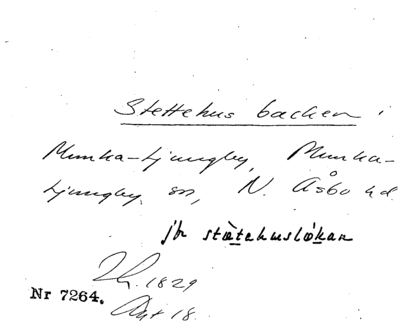 Stettehus backen i
Munka-Ljungby, Munka-
Ljungby sn, N. Åsbo hd
jfr stætehuslökan
1829
Nr 7264. Akt 18.